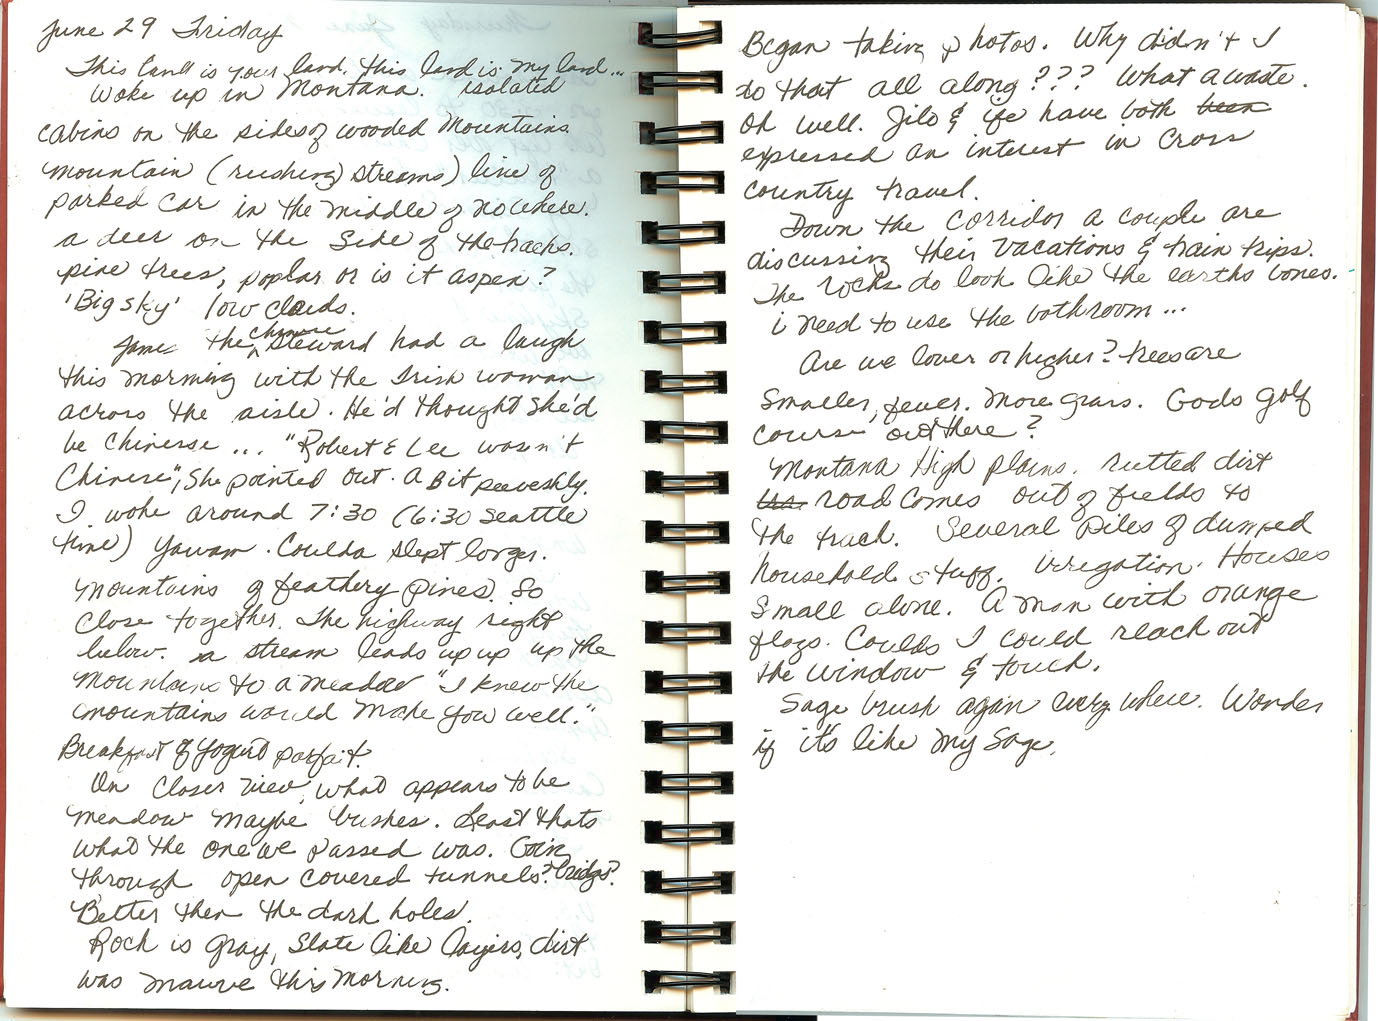 June 29 Friday
This land is your land. this land is my land...
Woke up in Montana. isolated
cabins on the sides of wooded mountains.
mountain (rushing) streams) line of
parked car in the middle of nowhere.
a deer on the side of the tracks.
pine trees, poplar or is it aspen?
'Big sky' low clouds.
James the chinese steward had a laugh
this morning with the Irish woman
across the aisle. He'd thought she'd
be Chinese ... "Robert E Lee wasn't
Chinese", she pointed out. A Bit peeveshly.
I woke around 7:30 (6:30 Seattle
time) Yawam. Coulda slept longer.
Mountains of feathery pines. So
close together. The highway right
below. a stream leads up up up the
mountains to a meadow "I knew the
mountains would make you well."
Breakfast of Yogurt parfait.
On closer view, what appears to be
meadow maybe bushes. Least thats
what the one we passed was. Goin
through open covered tunnels? bridgs?
Better then the dark holes.
Rock is gray, slate like layers, dirt
was mauve this morning.
Began taking photos. Why didn't I
do that all along??? What a waste.
Oh well. Jilo & ife have both been
expressed an interest in cross
country travel.
Down the corridor a couple are
discussing their vacations & train trips.
The rocks do look like the earths bones.
i need to use the bathroom...
Are we lower or higher? trees are
smaller, fewer. More grass. Gods golf
course out there?
Montana High plains. rutted dirt
road comes out of fields to
the track. Several piles of dumped
household stuff. irregation. Houses
small alone. A man with orange
flags. Coulds I could reach out
the window & touch.
Sage brush again every where. Wonder
if it's like my sage.